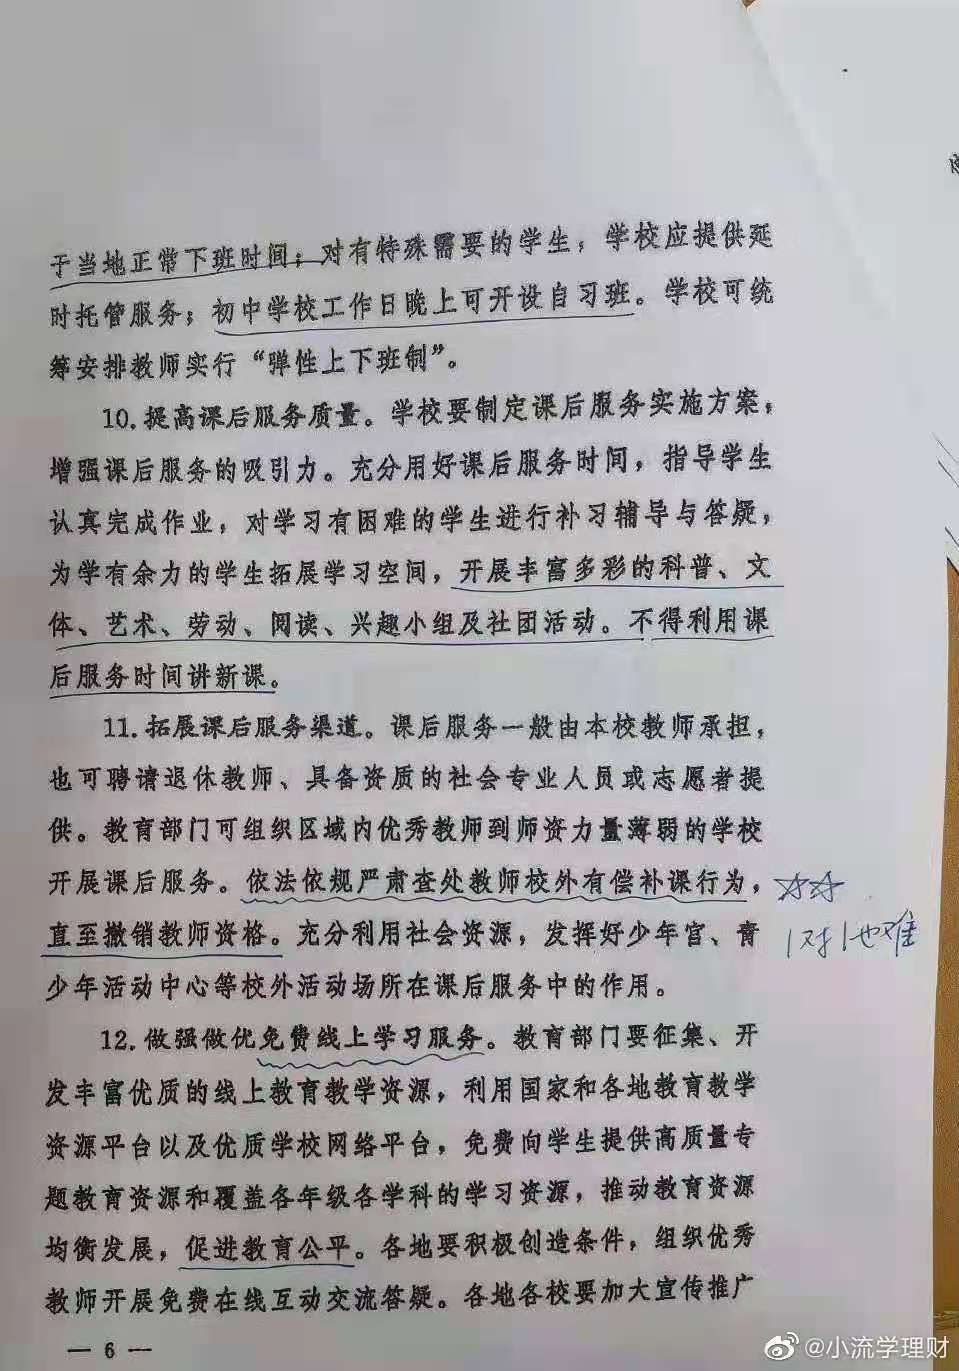 于当地正常下班时间；对有特殊需要的学生，学校应提供延
时托管服务；初中学校工作日晚上可开设自习班。学校可统
筹安排教师实行“弹性上下班制”。
10.提高课后服务质量。学校要制定课后服务实施方案，
增强课后服务的吸引力。充分用好课后服务时间，指导学生
认真完成作业，对学习有困难的学生进行补习辅导与答疑，
为学有余力的学生拓展学习空间，开展丰富多彩的科普、文
体、艺术、劳动、阅读、兴趣小组及社团活动。不得利用课
后服务时间讲新课。
11.拓展课后服务渠道。课后服务一般由本校教师承担，
也可聘请退休教师、具备资质的社会专业人员或志愿者提
供。教育部门可组织区域内优秀教师到师资力量薄弱的学校
开展课后服务。依法依规严肃查处教师校外有偿补课行为，
直至撤销教师资格。充分利用社会资源，发挥好少年宫、青
少年活动中心等校外活动场所在课后服务中的作用。
1对1也难
12.做强做优免费线上学习服务。教育部门要征集、开
发丰富优质的线上教育教学资源，利用国家和各地教育教学
资源平台以及优质学校网络平台，免费向学生提供高质量专
题教育资源和覆盖各年级各学科的学习资源，推动教育资源
均衡发展，促进教育公平。各地要积极创造条件，组织优秀
教师开展免费在线互动交流答疑。各地各校要加大宣传推广
— 6 —
@小流学理财